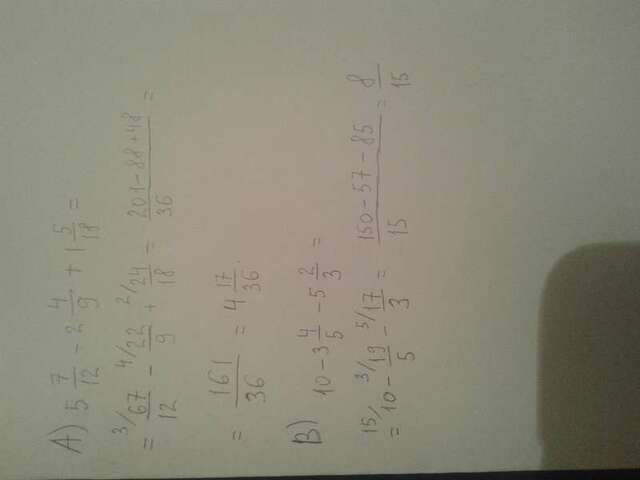 A) 5 7/12 - 2 4/9 + 1 5/18 =
= 3/ 67/12 - 4/ 22/9 + 2/ 24/18 = 201-88+48/36 =
= 161/36 = 4 17/36.
B) 10 - 3 4/5 - 5 2/3 =
= 15/ 10 - 3/ 19/5 - 5/ 17/3 = 150-57-85/15 = 8/15